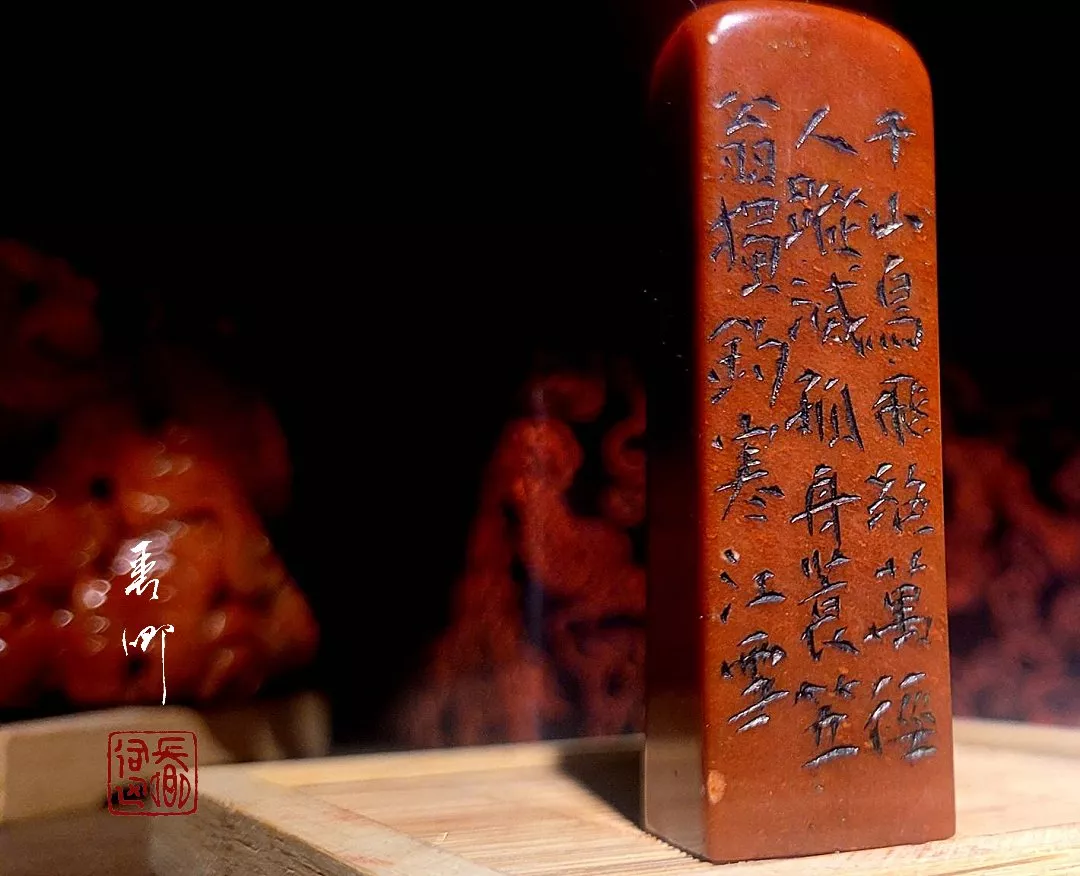 千山鳥飛絕萬徑
人蹤滅孤舟蓑笠
翁獨釣寒江雪